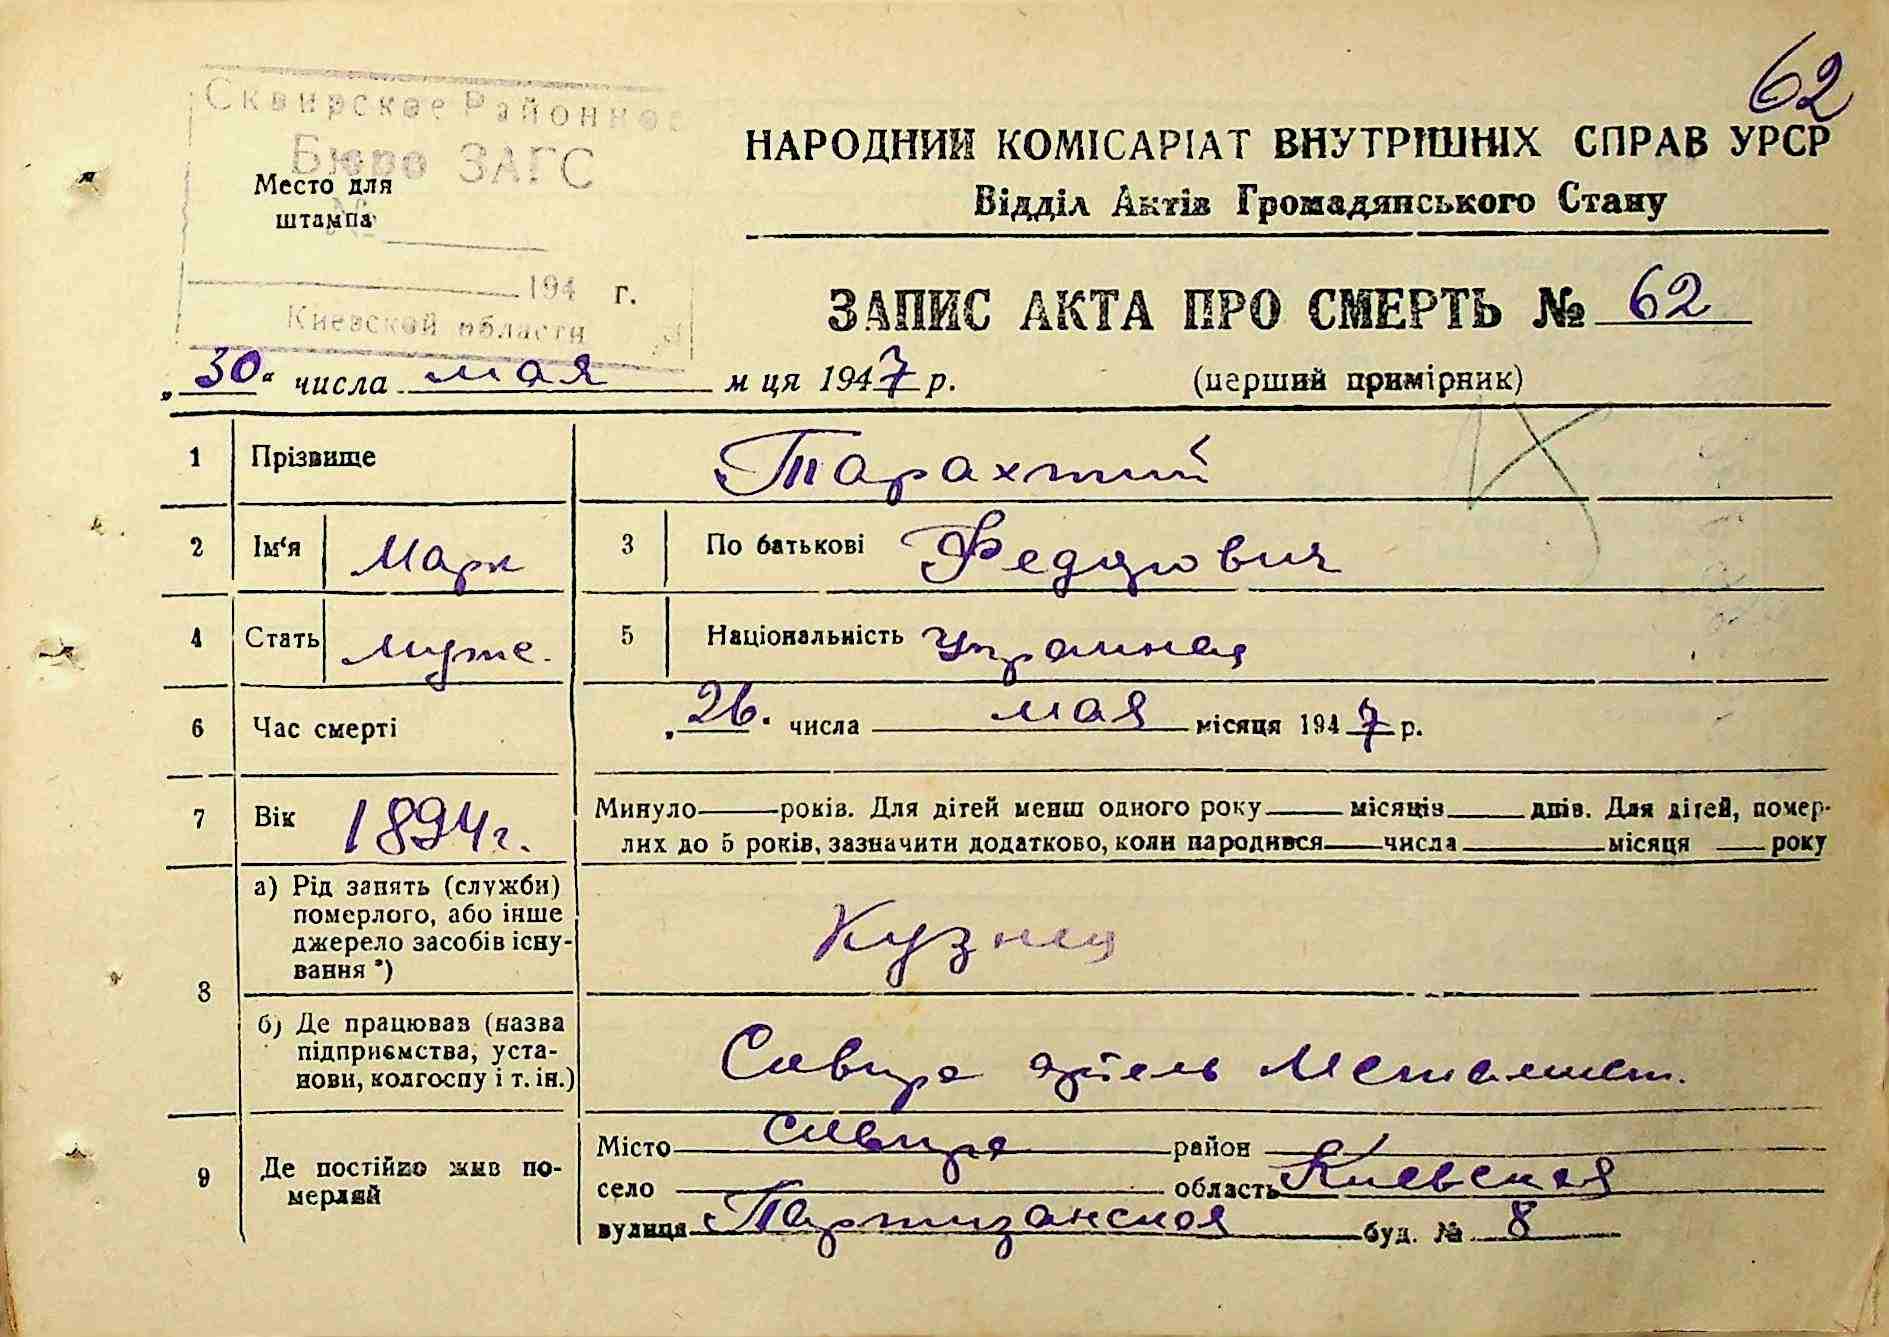 62
Сквирское Районное
Бюро ЗАГС
Место для
штампа
№
194 г.
Киевской области
НАРОДНИЙ КОМІСАРІАТ ВНУТРІШНІХ СПРАВ УРСР
Відділ Актів Громадянського Стану
ЗАПИС АКТА ПРО СМЕРТЬ № 62
„30“ числа мая м ця 1947 р. (перший примірник)
1 Прізвище Тарахтий
2 Ім‘я Марк 3 По батькові Федорович
4 Стать муже. 5 Національність украинец
6 Час смерті „26. числа мая місяця 1947 р.
7 Вік 1894 г. Минуло років. Для дітей менш одного року місяців днів. Для дітей, помер-
лих до 5 років, зазначити додатково, коли народився числа місяця року
8 а) Рід занять (служби)
померлого, або інше
джерело засобів існу-
вання *)
Кузнец
б) Де працював (назва
підприємства, уста-
нови, колгоспу і т. ін.)
Сквира артель Металист.
9 Де постійно жив по-
мерлий
Місто Сквира район
село область Киевская
вулиця Партизанская буд. № 8